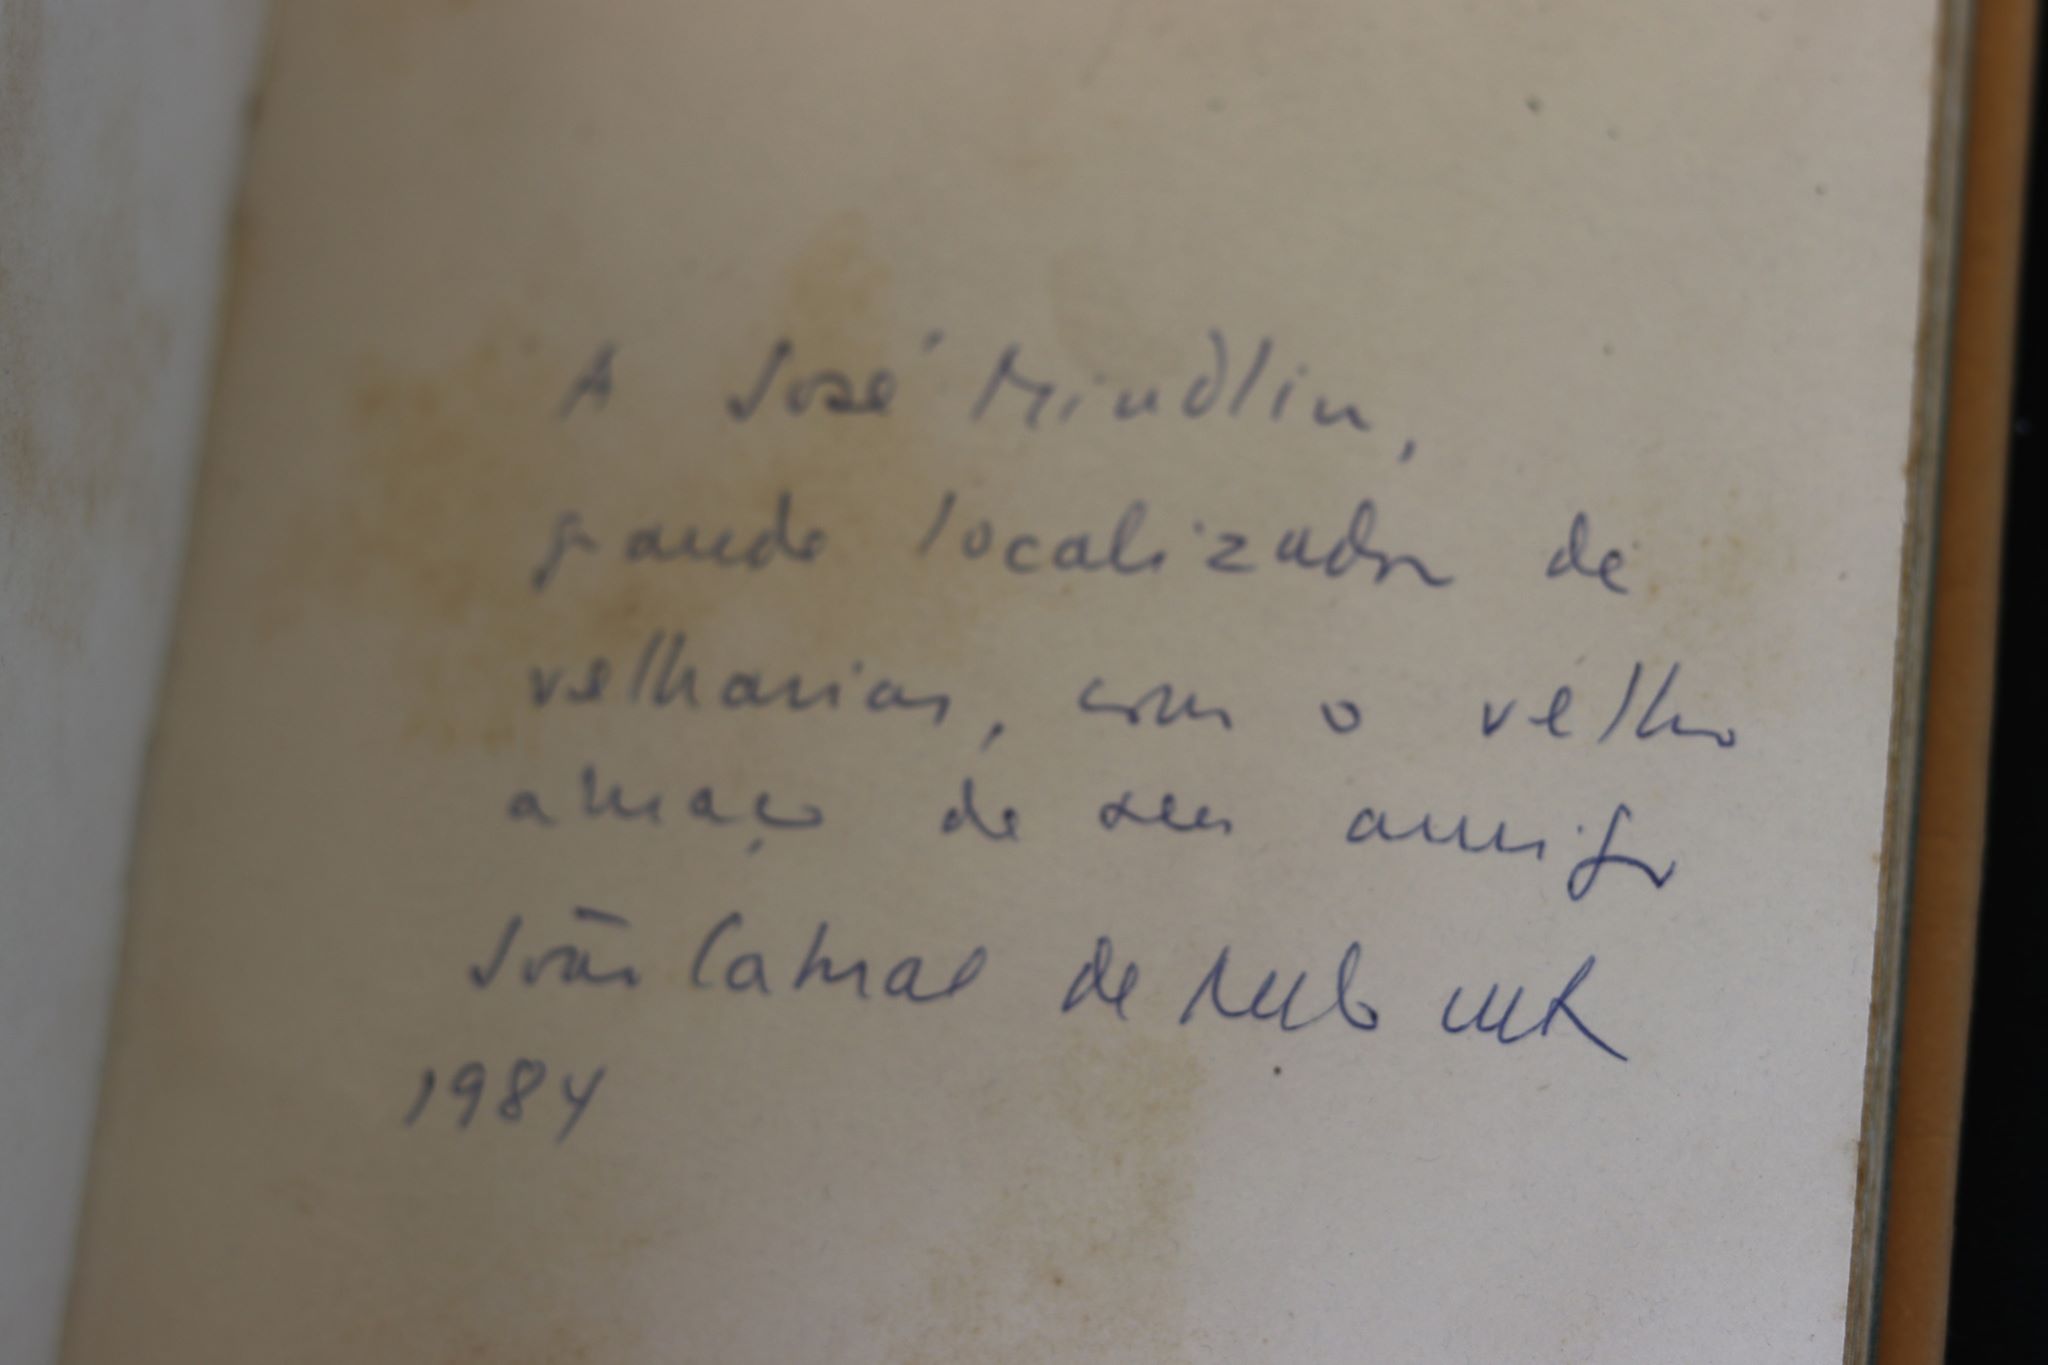 A José Mindlin,
grande localizador de
velharias, com o velho
abraço de seu amigo
João Cabral de Melo
1984